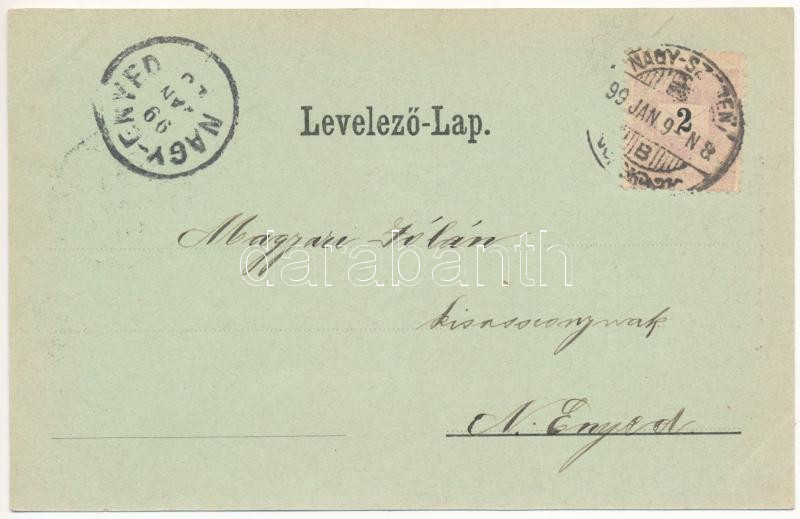 NAGY-ENYED
99 JAN
Levelező-Lap.
NAGY-SZEBEN
99 JAN 9 N 8
B
2
Magyari Jólán
kisasszonynak
N. Enyed
darabanth